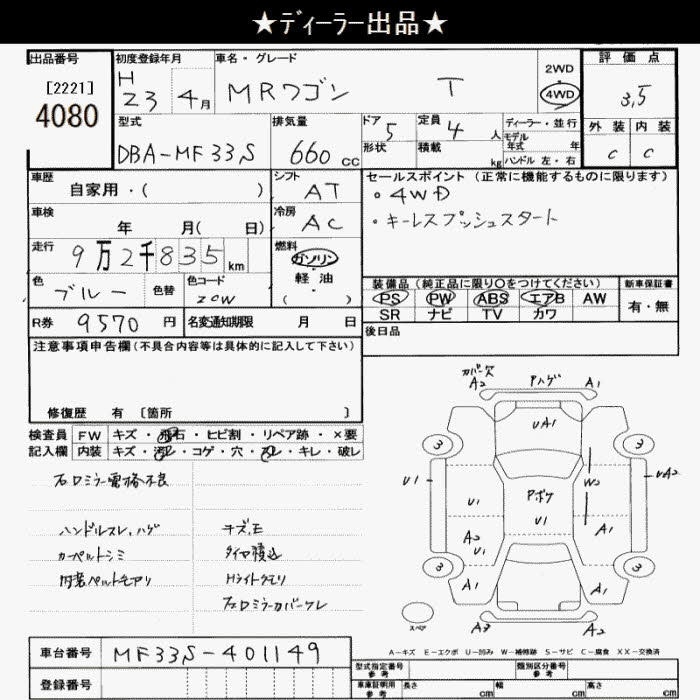 ★ディーラー出品★
出品番号
[2221]
4080
初度登録年月
H
23 4月
車名・グレード
MRワゴン T
2WD
4WD
評価点
3.5
外装 内装
C C
型式
DBA-MF33S
排気量
660 cc
ドア 5
形状
定員 4 人
積載 kg
ディーラー・並行
モデル
年式 年
ハンドル 左・右
車歴
自家用・( )
シフト
AT
車検
年 月( 日)
冷房
AC
走行
9万2千835km
燃料
ガソリン
軽油
( )
色
ブルー
色替
色コード
ZCW
R券 9570 円
名変通知期限 月 日
セールスポイント(正常に機能するものに限ります)
・4WD
・キーレスプッシュスタート
装備品(純正品に限り○をつけてください)
PS PW ABS エアB AW
SR ナビ TV カワ
新車保証書
有・無
後日品
注意事項申告欄(不具合内容等は具体的に記入して下さい)
修復歴 有 〔箇所 〕
検査員 FW キズ・飛石・ヒビ割・リペア跡・×要
記入欄 内装 キズ・汚レ・コゲ・穴・スレ・キレ・破レ
右ロミラー電格不良
ハンドルスレ、ハゲ
カーペットシミ
内装ペットモアリ
チズ,E
タイヤ積込
Hライトクモリ
右ロミラーカバーワレ
カバー欠
A2
アハゲ
A1
UA1
3
3
U1
U1
W2
UA2
Pボケ
U1
A2
U1
A1
3
3
A1
A1
スペア
A3
A2
A-キズ E-エクボ U-凹み W-補修跡 S-サビ C-腐食 XX-交換済
車台番号 MF33S-401149
登録番号
型式指定番号
参考
類別区分番号
参考
車庫証明用
参考
長さ cm
幅 cm
高さ cm